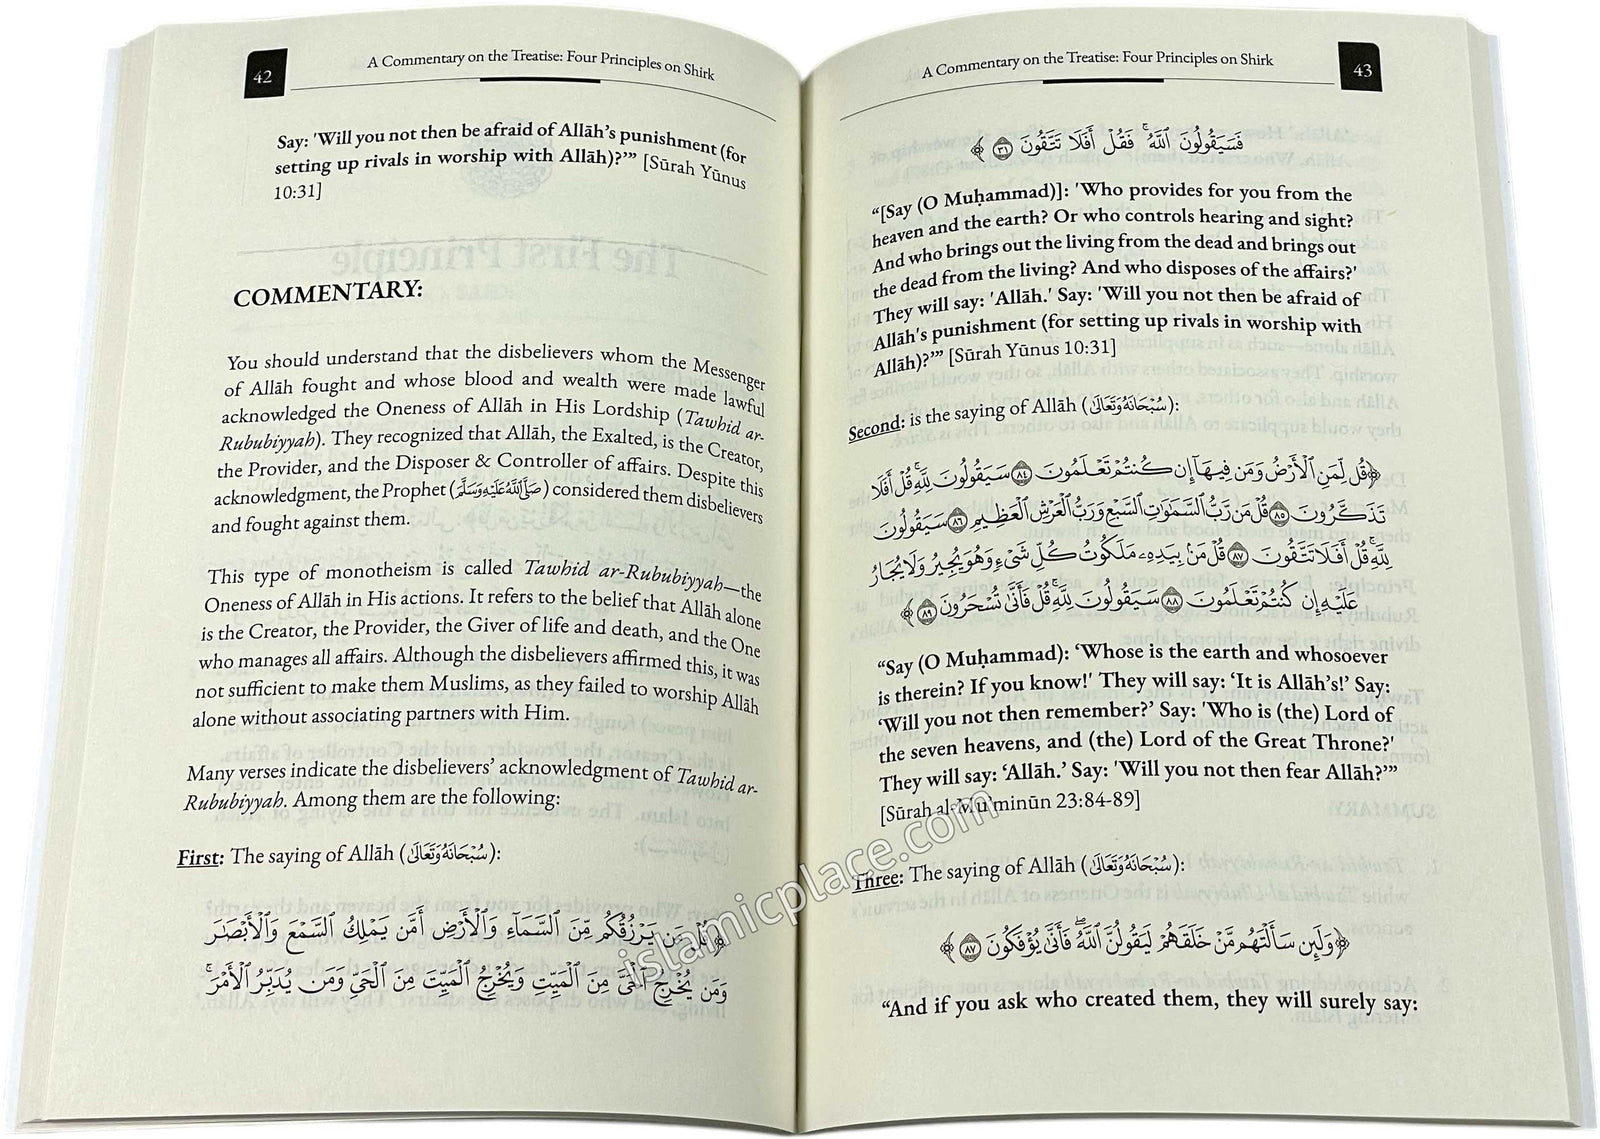 42
A Commentary on the Treatise: Four Principles on Shirk
Say: 'Will you not then be afraid of Allāh’s punishment (for
setting up rivals in worship with Allāh)?’” [Sūrah Yūnus
10:31]
COMMENTARY:
You should understand that the disbelievers whom the Messenger
of Allāh fought and whose blood and wealth were made lawful
acknowledged the Oneness of Allāh in His Lordship (Tawhid ar-
Rububiyyah). They recognized that Allāh, the Exalted, is the Creator,
the Provider, and the Disposer & Controller of affairs. Despite this
acknowledgment, the Prophet (صَلَّى اللَّهُ عَلَيْهِ وَسَلَّمَ) considered them disbelievers
and fought against them.
This type of monotheism is called Tawhid ar-Rububiyyah—the
Oneness of Allāh in His actions. It refers to the belief that Allāh alone
is the Creator, the Provider, the Giver of life and death, and the One
who manages all affairs. Although the disbelievers affirmed this, it was
not sufficient to make them Muslims, as they failed to worship Allāh
alone without associating partners with Him.
Many verses indicate the disbelievers’ acknowledgment of Tawhid ar-
Rububiyyah. Among them are the following:
First: The saying of Allāh (سُبْحَانَهُ وَتَعَالَى):
﴿قُلْ مَن يَرْزُقُكُم مِّنَ السَّمَاءِ وَالْأَرْضِ أَمَّن يَمْلِكُ السَّمْعَ وَالْأَبْصَارَ
وَمَن يُخْرِجُ الْحَيَّ مِنَ الْمَيِّتِ وَيُخْرِجُ الْمَيِّتَ مِنَ الْحَيِّ وَمَن يُدَبِّرُ الْأَمْرَ ۚ
A Commentary on the Treatise: Four Principles on Shirk
43
فَسَيَقُولُونَ اللَّهُ ۚ فَقُلْ أَفَلَا تَتَّقُونَ ٣١﴾
“[Say (O Muḥammad)]: 'Who provides for you from the
heaven and the earth? Or who controls hearing and sight?
And who brings out the living from the dead and brings out
the dead from the living? And who disposes of the affairs?'
They will say: 'Allāh.' Say: 'Will you not then be afraid of
Allāh's punishment (for setting up rivals in worship with
Allāh)?’” [Sūrah Yūnus 10:31]
Second: is the saying of Allāh (سُبْحَانَهُ وَتَعَالَى):
﴿قُل لِّمَنِ الْأَرْضُ وَمَن فِيهَا إِن كُنتُمْ تَعْلَمُونَ ٨٤ سَيَقُولُونَ لِلَّهِ ۚ قُلْ أَفَلَا
تَذَكَّرُونَ ٨٥ قُلْ مَن رَّبُّ السَّمَاوَاتِ السَّبْعِ وَرَبُّ الْعَرْشِ الْعَظِيمِ ٨٦ سَيَقُولُونَ
لِلَّهِ ۚ قُلْ أَفَلَا تَتَّقُونَ ٨٧ قُلْ مَن بِيَدِهِ مَلَكُوتُ كُلِّ شَيْءٍ وَهُوَ يُجِيرُ وَلَا يُجَارُ
عَلَيْهِ إِن كُنتُمْ تَعْلَمُونَ ٨٨ سَيَقُولُونَ لِلَّهِ ۚ قُلْ فَأَنَّىٰ تُسْحَرُونَ ٨٩﴾
“Say (O Muḥammad): ‘Whose is the earth and whosoever
is therein? If you know!' They will say: ‘It is Allāh’s!’ Say:
‘Will you not then remember?’ Say: 'Who is (the) Lord of
the seven heavens, and (the) Lord of the Great Throne?'
They will say: ‘Allāh.’ Say: 'Will you not then fear Allāh?’”
[Sūrah al-Mu’minūn 23:84-89]
Three: The saying of Allāh (سُبْحَانَهُ وَتَعَالَى):
﴿وَلَئِن سَأَلْتَهُم مَّنْ خَلَقَهُمْ لَيَقُولُنَّ اللَّهُ ۖ فَأَنَّىٰ يُؤْفَكُونَ ٨٧﴾
“And if you ask who created them, they will surely say:
islamicplace.com